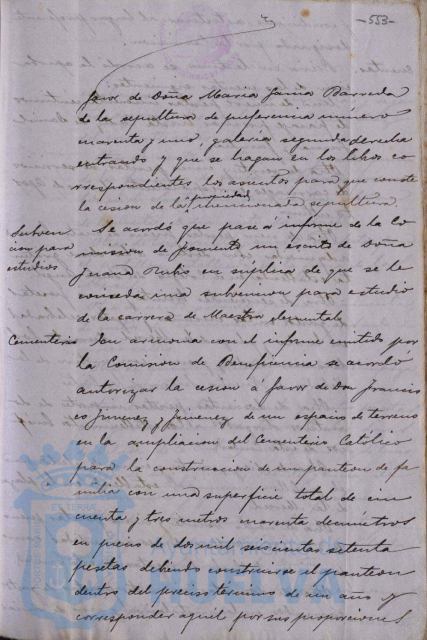 -553-
favor de Doña Maria Juana Barreda
de la sepultura de preferencia número
cuarenta y uno, galeria segunda derecha
entrando y que se hagan en los libros co
rrespondientes los asientos para que conste
la cesion de la propiedad mencionada sepultura.
Subven
cion para
estudios
Se acordó que pase á informe de la Co
mision de fomento un escrito de Doña
Juana Rubio en súplica de que se le
conceda una subvencion para estudio
de la carrera de Maestra elemental.
Cementerio
En armonia con el informe emitido por
la Comision de Beneficencia se acordó
autorizar la cesion á favor de Don Francis
co Jimenez y Jimenez de un espacio de terreno
en la ampliacion del Cementerio Católico
para la construccion de un panteon de fa
milia con una superficie total de cin
cuenta y tres metros cuarenta decimétros
en precio de dos mil seiscientas setenta
pesetas debiendo construirse el panteon
dentro del preciso término de un año y
corresponder aquel por sus proporciones
HUELVA